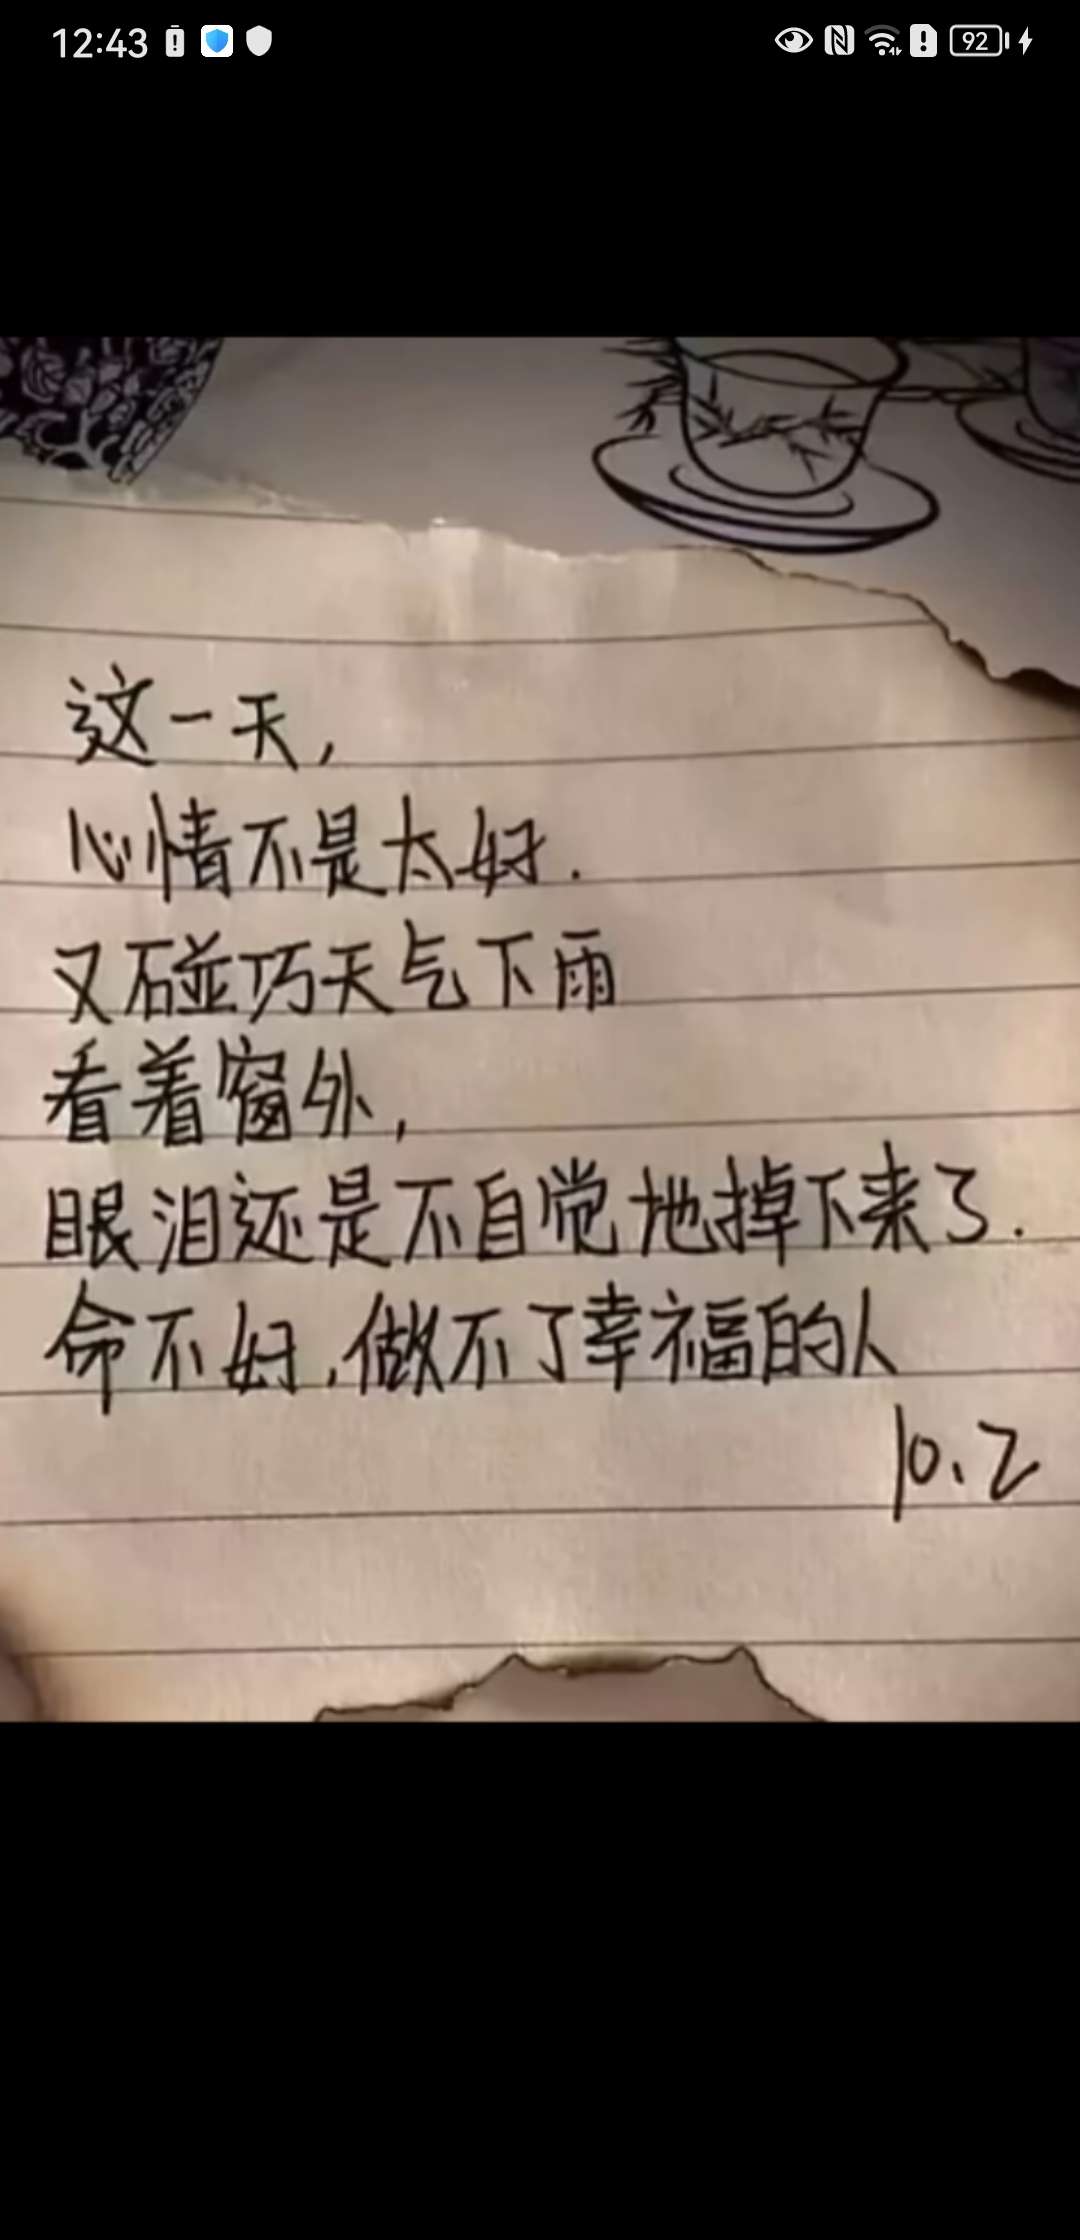 12:43
92
这一天，
心情不是太好.
又碰巧天气下雨
看着窗外，
眼泪还是不自觉地掉下来了.
命不好，做不了幸福的人
10、2